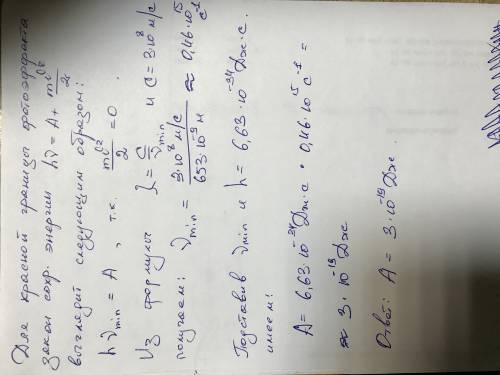 Для красной границы фотоэффекта
закон сохр. энергии hν = A + mv²/2
выглядит следующим образом:
hν min = A , т.к. mv²/2 = 0 .
Из формулы λ = c/ν min и c = 3·10⁸ м/с
получаем: ν min = 3·10⁸ м/с / 653·10⁻⁹ м ≈ 0,46·10¹⁵ с⁻¹
Подставив ν min и h = 6,63·10⁻³⁴ Дж·с.
имеем:
A = 6,63·10⁻³⁴ Дж·с · 0,46·10¹⁵ с⁻¹ =
≈ 3·10⁻¹⁹ Дж
Ответ: A = 3·10⁻¹⁹ Дж.